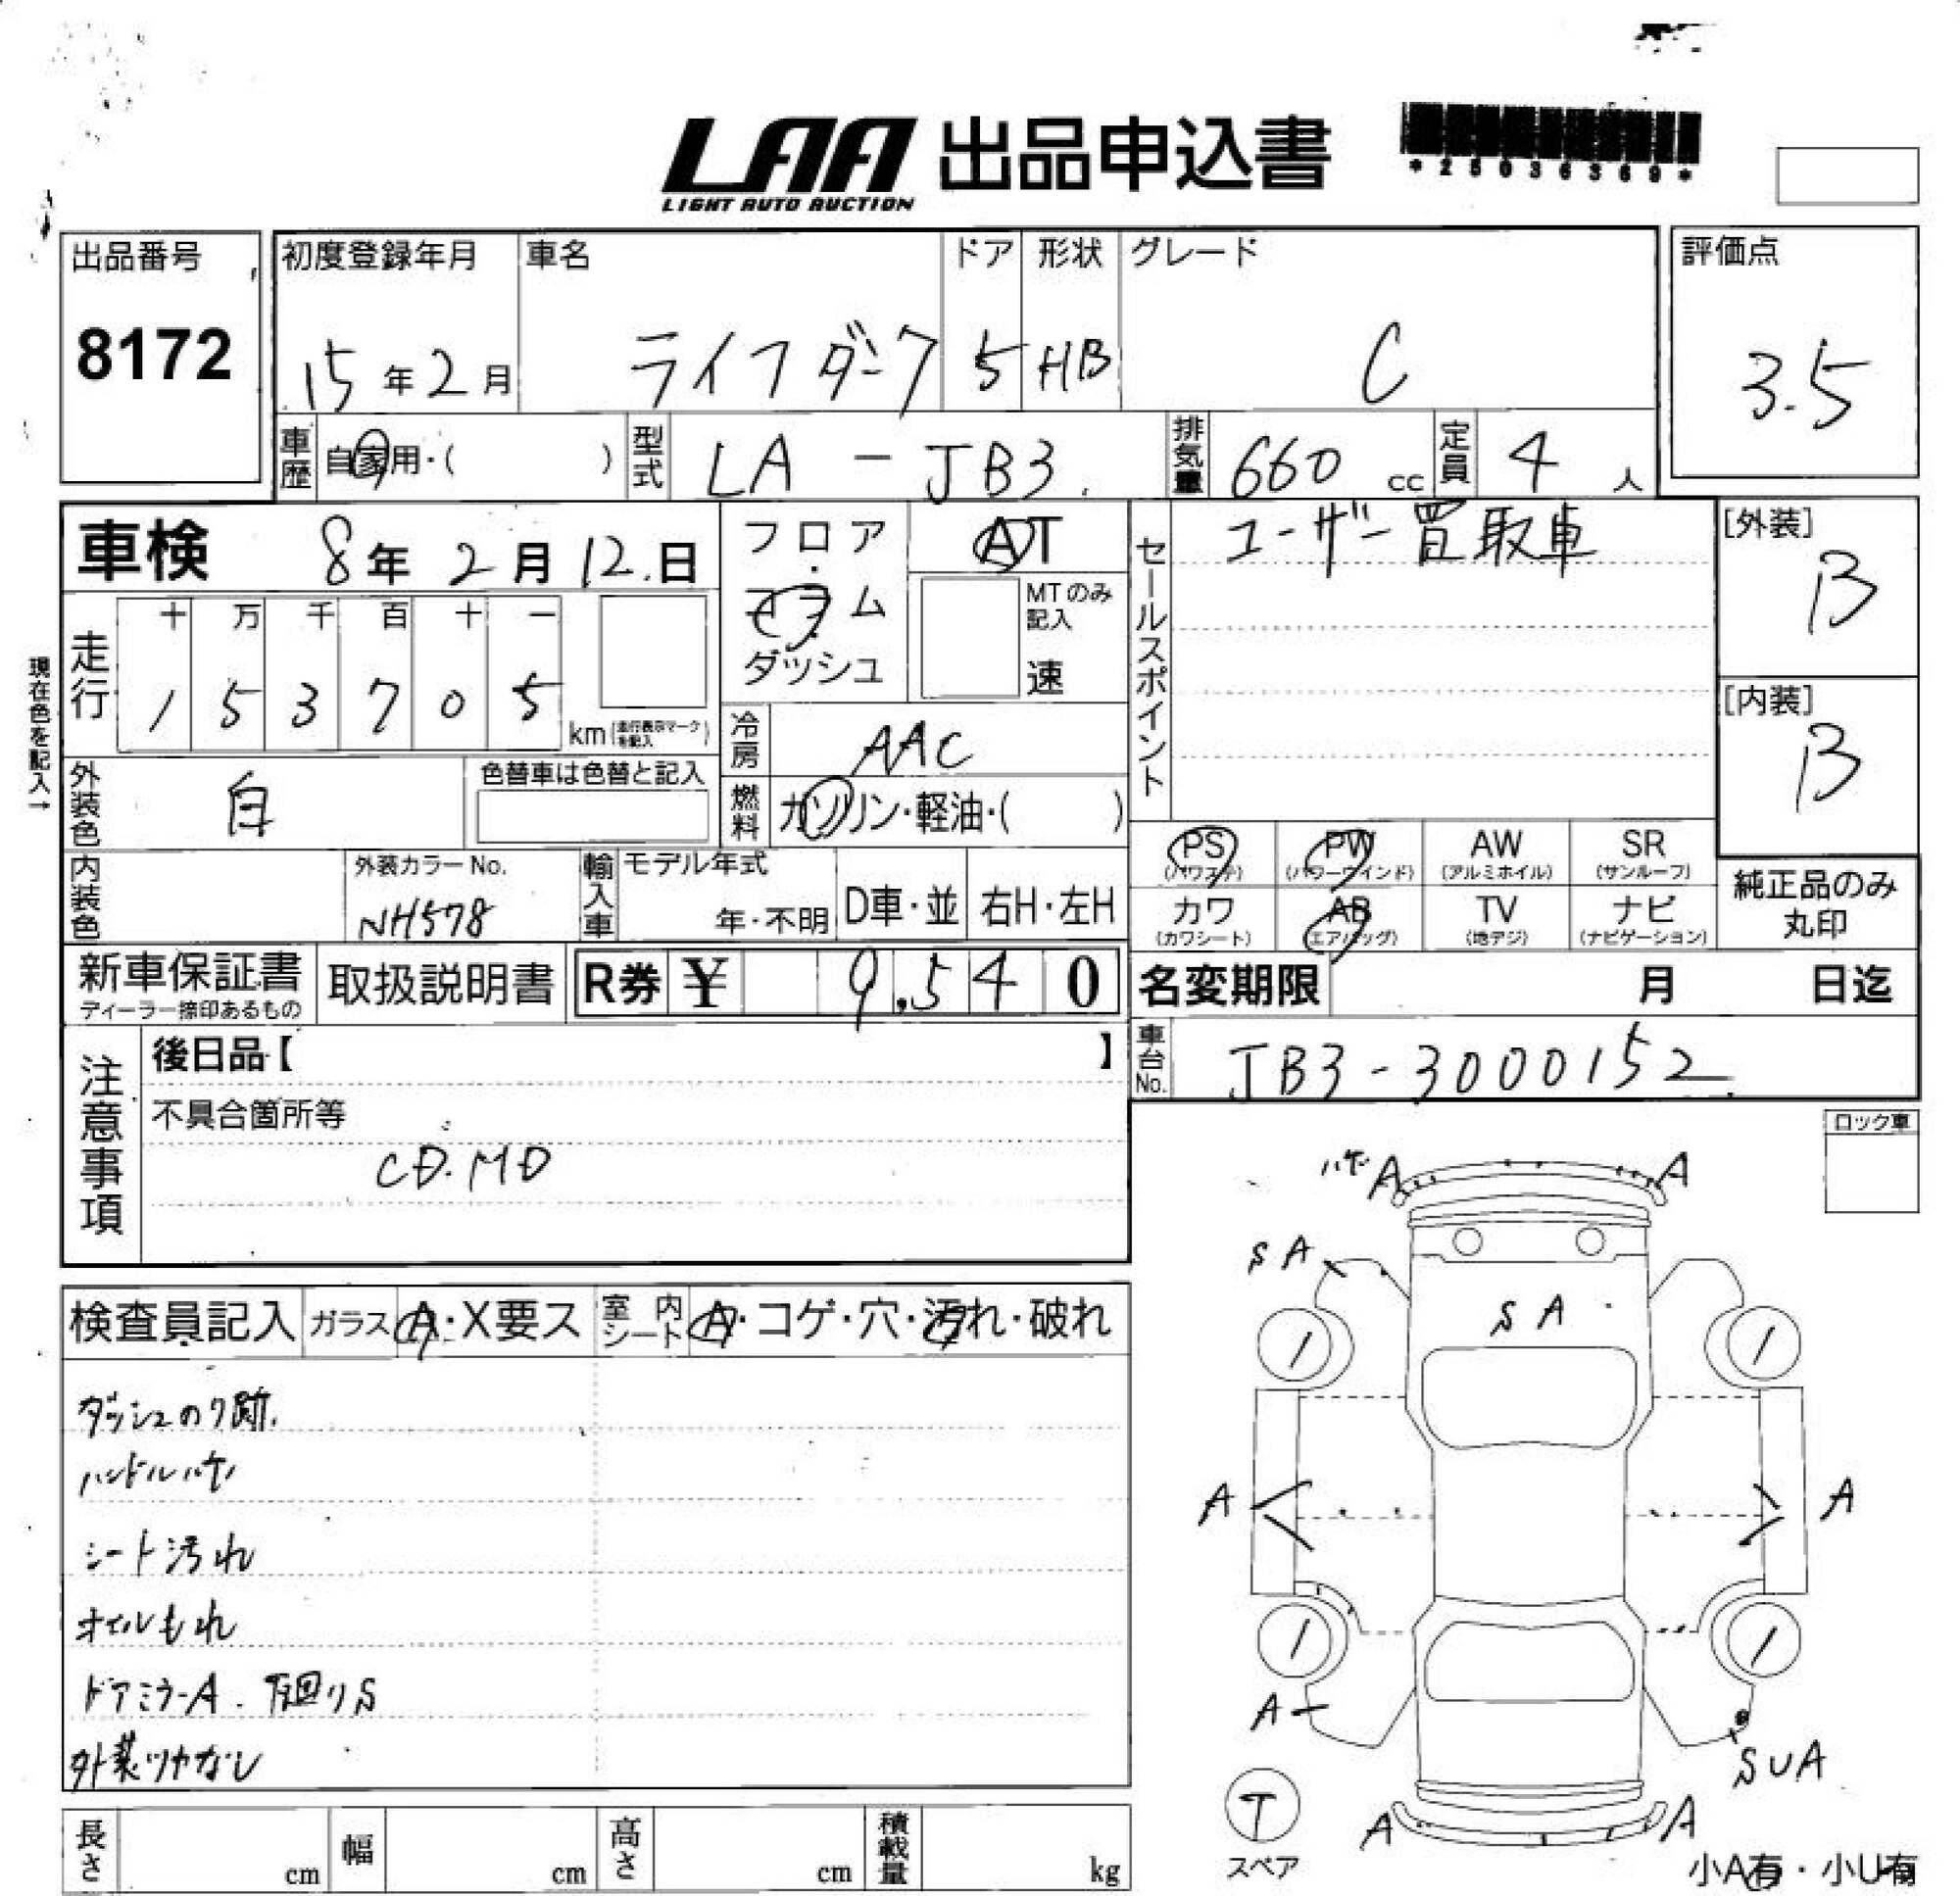 LAA 出品申込書
LIGHT AUTO AUCTION
*25036369*
出品番号
8172
初度登録年月
15年2月
車名
ライフダンク
ドア
5
形状
HB
グレード
C
評価点
3.5
車歴
自家用・( )
型式
LA - JB3
排気量
660 cc
定員
4 人
車検 8年2月12日
フロア・コラム・ダッシュ
AT
MTのみ記入
速
セールスポイント
ユーザー買取車
[外装]
B
[内装]
B
現在色を記入→
走行
十 万 千 百 十 一
1 5 3 7 0 5 km (走行表示マークを記入)
冷房
AAC
外装色
白
色替車は色替と記入
燃料
ガソリン・軽油・( )
PS (パワステ)
PW (パワーウインド)
AW (アルミホイル)
SR (サンルーフ)
カワ (カワシート)
AB (エアバッグ)
TV (地デジ)
ナビ (ナビゲーション)
純正品のみ丸印
内装色
外装カラーNo.
NH578
輸入車
モデル年式
年・不明
D車・並
右H・左H
新車保証書
ディーラー捺印あるもの
取扱説明書
R券 ¥ 9,540
名変期限 月 日迄
車台No.
JB3-3000152
注意事項
後日品【 】
不具合箇所等
CD.MD
ロック車
検査員記入
ガラス A・X要ス
室内シート A・コゲ・穴・汚れ・破れ
ダッシュのり跡
ハンドルハゲ
シート汚れ
オイルもれ
ドアミラーA. 下回りS
外装ツヤなし
ハゲ A A
SA
SA
A A
A
SUA
T
スペア
A A
小A有・小U有
長さ cm
幅 cm
高さ cm
積載量 kg